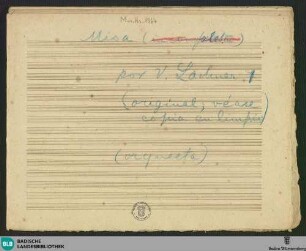 Mus. Hs. 1364
Misa
por V. Lachner
(original, véase
copia en limpio)
(orquesta)
BLB
BADISCHE
LANDESBIBLIOTHEK
Baden-Württemberg